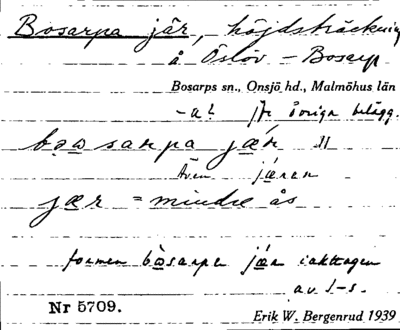 Bosarpa jär, höjdsträckning
å Öslöv – Bosarp
Bosarps sn., Onsjö hd., Malmöhus län
-a? jfr övriga belägg.
bosarpa jær n
även jæren
jær = mindre ås
formen bosarpa jær iakttagen
av I–s.
Nr 5709.
Erik W. Bergenrud 1939